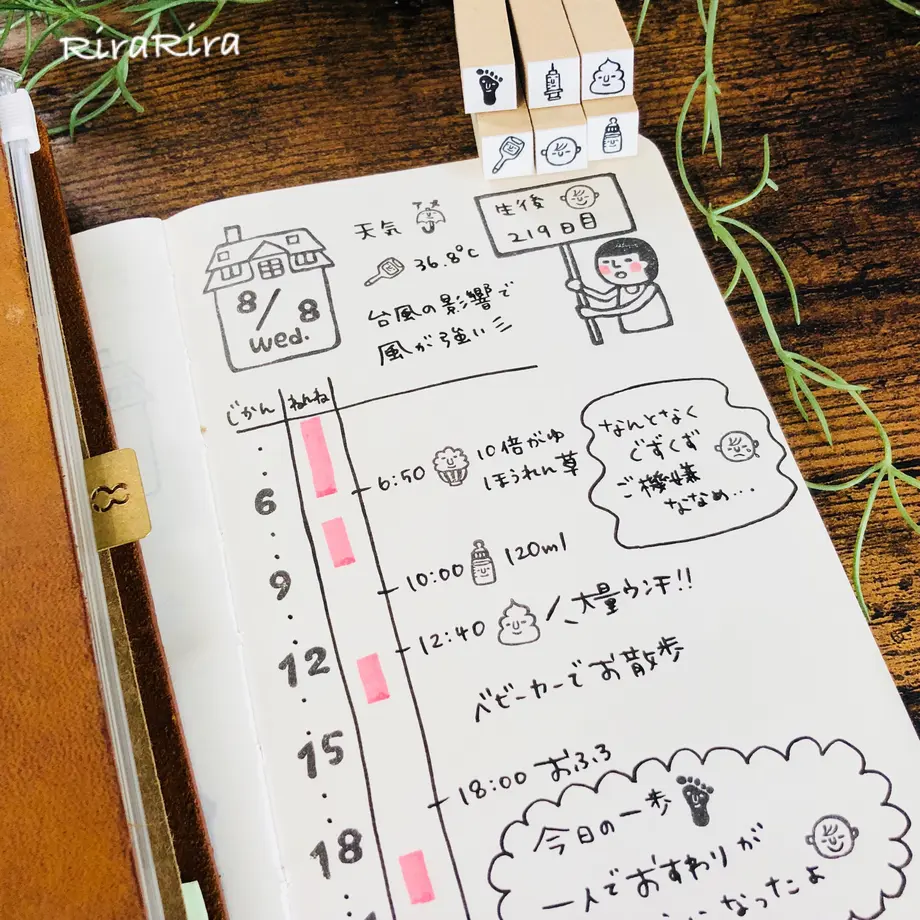 RiraRira
天気
アメ
36.8℃
台風の影響で
風が強い
8/8
wed.
生後
219日目
じかん
ねんね
6
9
12
15
18
6:50
10倍がゆ
ほうれん草
なんとなく
ぐずぐず
ご機嫌
ななめ…
10:00
120ml
12:40
大量ウンチ!!
ベビーカーでお散歩
18:00 おふろ
今日の一歩
一人でおすわりが
になったよ